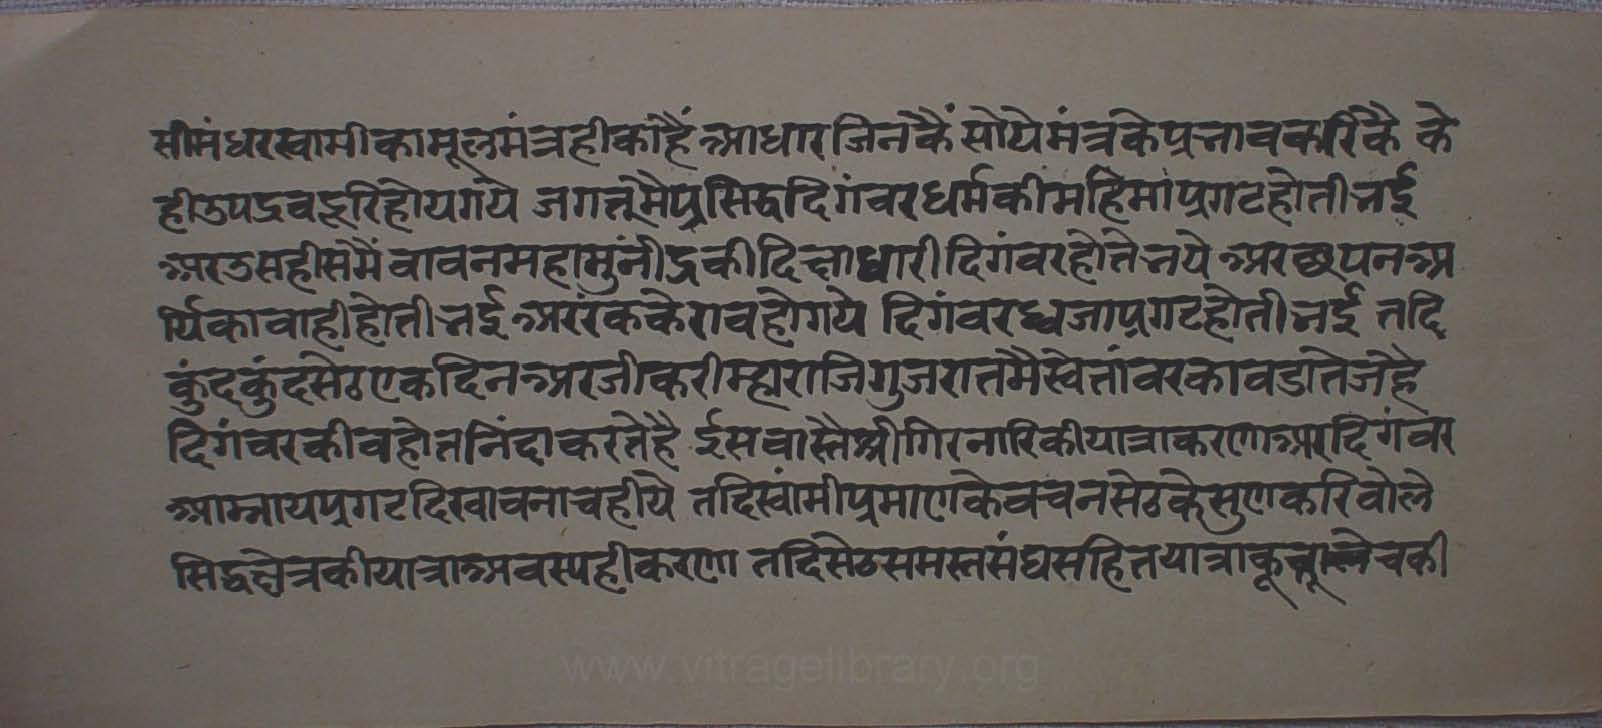 सीमंधरस्वामीकामूलमंत्रहीकाहैं आधारजिनकैं सोयेमंत्रकेप्रभावकरिकै के
हीउपद्रवदूरिहोयगये जगत्मैप्रसिद्धदिगंवरधर्मकीमहिमांप्रगटहोतीभई
अरउसहीसमैं वावनमहामुंनीद्रकीदिक्षाधारीदिगंवरहोतेभये अरछपनअ
र्यिकावाहीहोतीभई अररंककेरावहोगये दिगंवरध्वजाप्रगटहोतीभई तदि
कुंदकुंदसेठएकदिनअरजीकरीम्हाराजिगुजरातमैस्वेतांवरकावडातेजहै
दिगंवरकीवहोतनिंदाकरतेहै ईसवास्तैश्रीगिरनारिकीयात्राकरणाअरदिगंवर
आम्नायप्रगटदिखावनाचहीये तदिस्वांमीप्रमाणकेवचनसेठकेसुणकरिवोले
सिद्धक्षेत्रकीयात्राअवस्यहीकरणा तदिसेठसमस्तसंघसहितयात्राकू
www.vitragelibrary.org